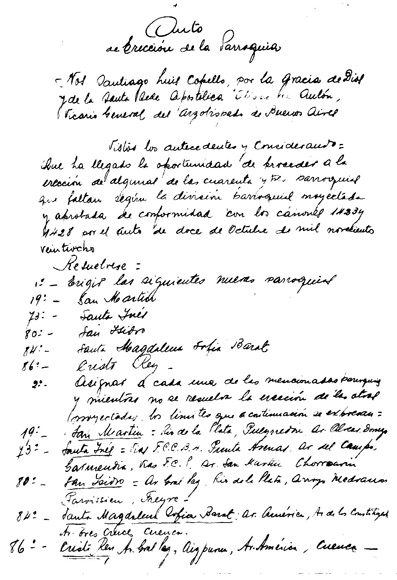 Auto
de Erección de la Parroquia
- Nos Santiago Luis Copello, por la Gracia de Dios
y de la Santa Sede Apostólica Obispo de Aulón,
Vicario General del Arzobispado de Buenos Aires
Vistos los antecedentes y Considerando =
Que ha llegado la oportunidad de proceder a la
erección de algunas de las cuarenta y parroquias
que faltan según la división parroquial proyectada
y aprobada de conformidad con los cánones 1423 y
1428 por el auto de doce de Octubre de mil novecientos
veintiocho
Resuelvese =
1º - Erigir las siguientes nuevas parroquias
19º - San Martín
73º - Santa Inés
80º - San Isidro
84º - Santa Magdalena Sofía Barat
86º - Cristo Rey -
2º - Asignar a cada una de las mencionadas parroquias
y mientras no se resuelva la erección de las otras
proyectadas, los límites que a continuación se expresan =
19º - San Martín = de la Plata, Pueyrredón Av.
73º - Santa Inés = vías F.C.C.B.A. Punta Arenas, Av. del Campo,
Garmendia, vías F.C.P. Av. San Martín Chorroarín
80º - San Isidro = Av Gral Paz, Río de la Plata, Arroyo Medrano
Paroissien, Freyre!
84º - Santa Magdalena Sofía Barat: Av. América, Av. de los
Av. Tres Cruces, Cuenca.
86º - Cristo Rey Av. Gral Paz, Aizpurua, Av. América, Cuenca -